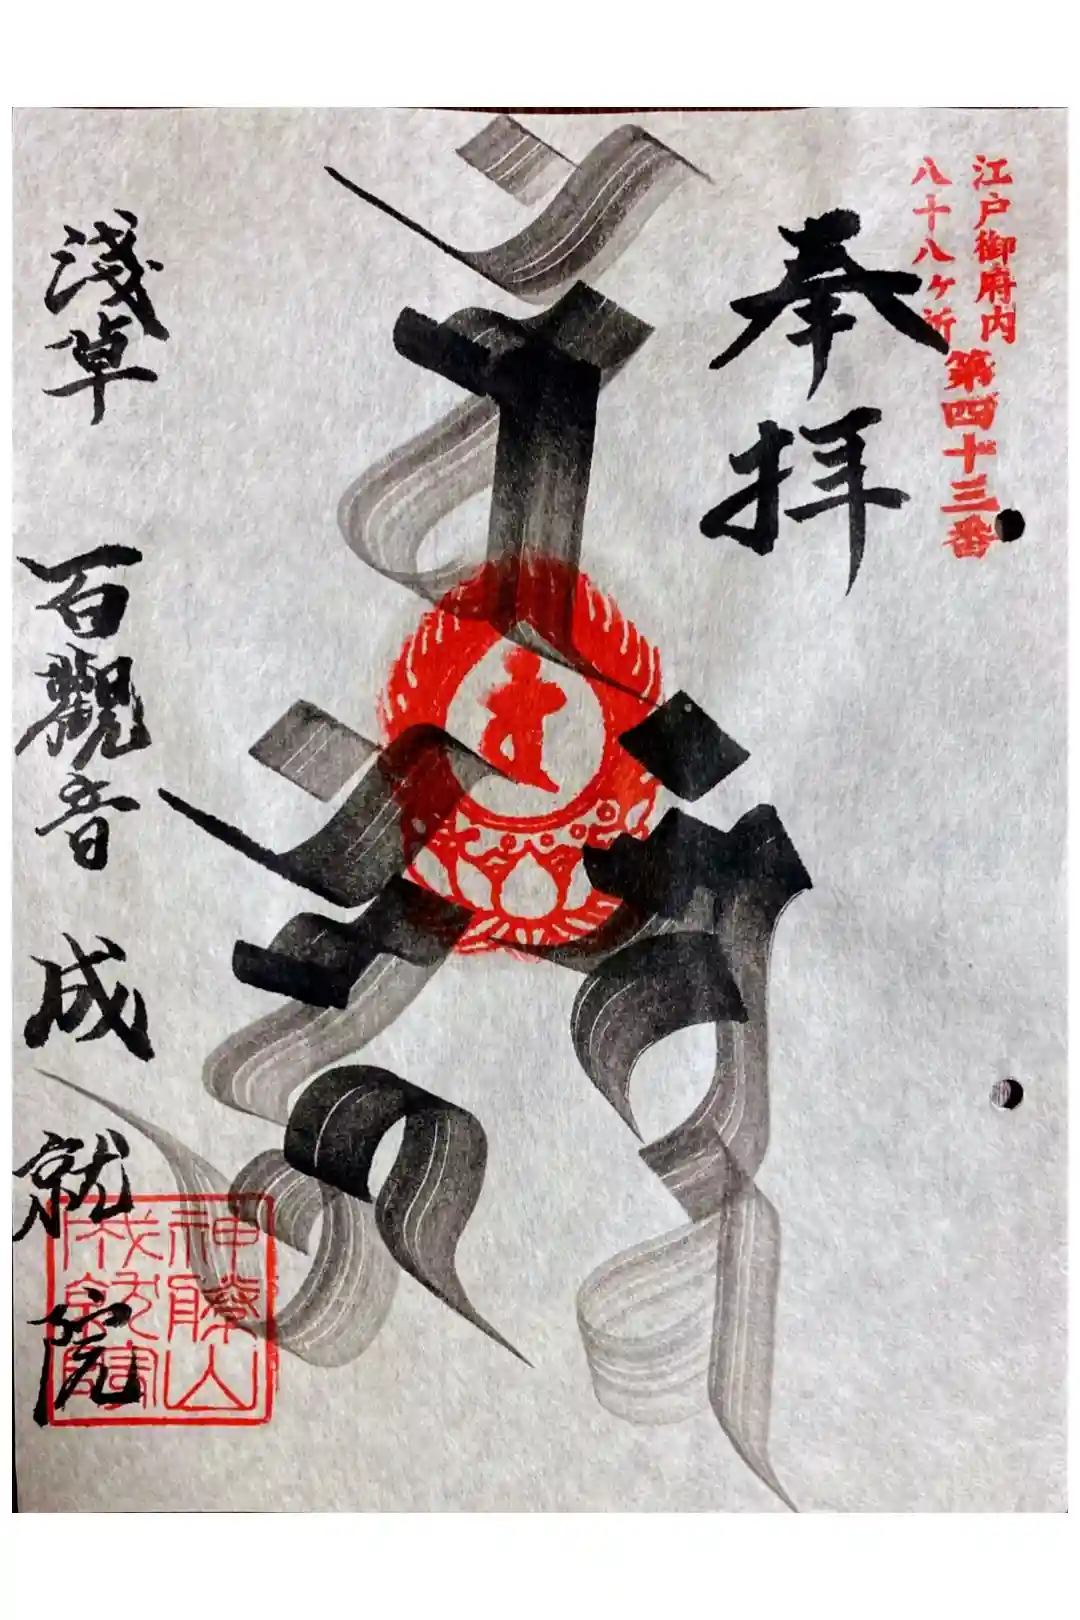 江戸御府内
八十八ヶ所
第四十三番
奉拝
淺草 百觀音 成就院
神勝山
成就院